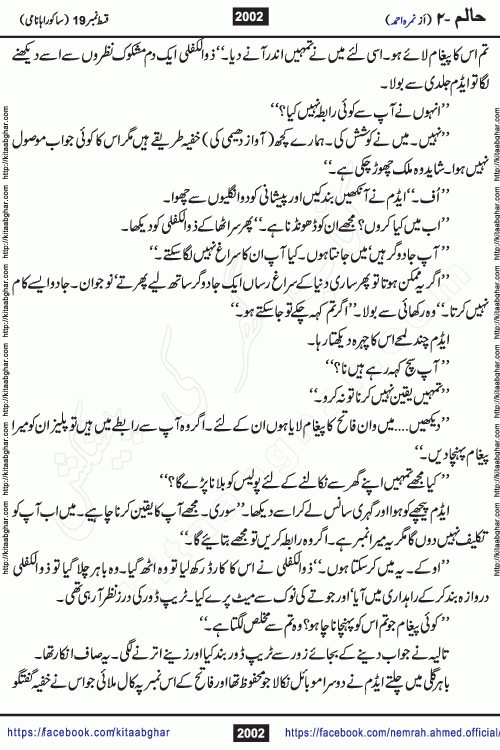 حالم -۲ (از نمرہ احمد) 2002 قسط نمبر 19 (ساکورا ہانامی)
تم اس کا پیغام لائے ہو۔ اسی لئے میں نے تمہیں اندر آنے دیا۔‘‘ ذوالکفلی ایک دم مشکوک نظروں سے اسے دیکھنے
لگا تو ایڈم جلدی سے بولا۔
’’انہوں نے آپ سے کوئی رابطہ نہیں کیا؟‘‘
’’نہیں۔ میں نے کوشش کی۔ ہمارے کچھ (آواز دھیمی کی) خفیہ طریقے ہیں مگر اس کا کوئی جواب موصول
نہیں ہوا۔ شاید وہ ملک چھوڑ چکی ہے۔‘‘
’’اُف۔‘‘ ایڈم نے آنکھیں بند کیں اور پیشانی کو دو انگلیوں سے چھوا۔
’’اب میں کیا کروں؟ مجھے ان کو ڈھونڈنا ہے۔‘‘ پھر سر اٹھا کے ذوالکفلی کو دیکھا۔
’’آپ جادوگر ہیں‘ میں جانتا ہوں۔ کیا آپ ان کا سراغ نہیں لگا سکتے۔‘‘
’’اگر یہ ممکن ہوتا تو پھر ساری دنیا کے سراغ رساں ایک جادوگر ساتھ لیے پھرتے‘ نوجوان۔ جادو ایسے کام
نہیں کرتا۔‘‘ وہ رکھائی سے بولا۔ ’’اگر تم کہہ چکے تو جا سکتے ہو۔‘‘
ایڈم چند لمحے اس کا چہرہ دیکھتا رہا۔
’’آپ سچ کہہ رہے ہیں نا؟‘‘
’’تمہیں یقین نہیں کرنا تو نہ کرو۔‘‘
’’دیکھیں.... میں وان فاتح کا پیغام لایا ہوں ان کے لئے۔ اگر وہ آپ سے رابطے میں ہیں تو پلیز ان کو میرا
پیغام پہنچا دیں۔‘‘
’’کیا مجھے تمہیں اپنے گھر سے نکالنے کے لئے پولیس کو بلانا پڑے گا؟‘‘
ایڈم پیچھے کو ہوا اور گہری سانس لے کر اسے دیکھا۔ ’’سوری۔ مجھے آپ کا یقین کرنا چاہیے۔ میں اب آپ کو
تکلیف نہیں دوں گا مگر یہ میرا نمبر ہے۔ اگر وہ رابطہ کریں تو مجھے بتائیے گا۔‘‘
’’اوکے۔ یہ میں کر سکتا ہوں۔‘‘ ذوالکفلی نے اس کا کارڈ رکھ لیا تو وہ اٹھ گیا۔ وہ باہر چلا گیا تو ذوالکفلی
دروازہ بند کر کے راہداری میں آیا‘ اور جوتے کی نوک سے میٹ پرے کیا۔ ٹریپ ڈور کی درز نظر آ رہی تھی۔
’’کوئی پیغام جو تم اس کو پہنچانا چاہو؟ وہ تم سے مخلص لگتا ہے۔‘‘
تالیہ نے جواب دینے کے بجائے زور سے ٹریپ ڈور بند کیا اور زینے اترنے لگی۔ یہ صاف انکار تھا۔
باہر گلی میں چلتے ایڈم نے دوسرا موبائل نکالا جو محفوظ تھا اور فاتح کے اس نمبر پہ کال ملائی جو اس نے خفیہ گفتگو
https://facebook.com/kitaabghar 2002 https://facebook.com/nemrah.ahmed.official/
http://kitaabghar.com http://kitaabghar.com http://kitaabghar.com http://kitaabghar.com http://kitaabghar.com
http://kitaabghar.com http://kitaabghar.com http://kitaabghar.com http://kitaabghar.com http://kitaabghar.com